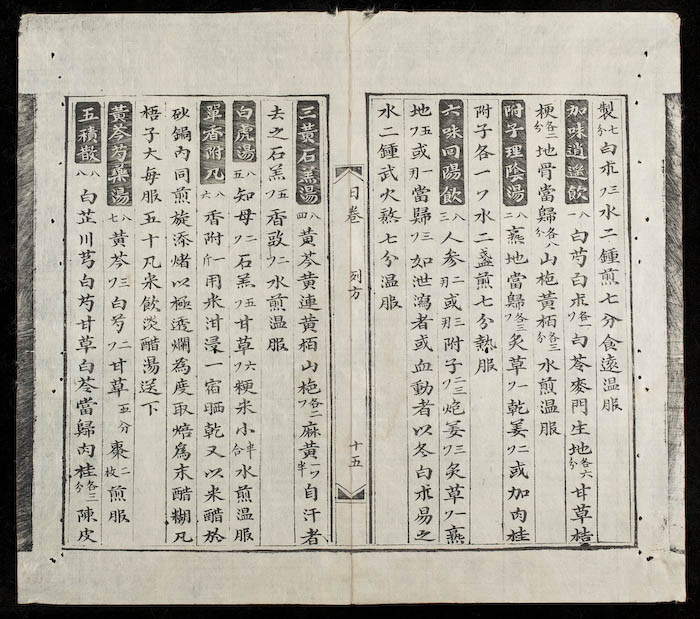 製七分白朮フ三水二鍾煎七分食遠温服
加味逍遥飲八一白芍白朮各一フ白苓麥門生地各六分甘草桔
梗各二分地骨當歸各八分山梔黄栢各三分水煎温服
附子理陰湯八二熟地當歸各三フ炙草フ一乾姜フ二或加肉桂
附子各一フ水二盞煎七分熱服
六味回陽飲八三人参二或三刄附子二三フ炮姜フ三炙草フ一熟
地五フ或一刄當歸フ三如泄瀉者或血動者以冬白朮易之
水二鍾武火熬七分温服
日卷 列方 十五
三黄石羔湯八四黄芩黄連黄栢山梔各二フ麻黄一フ半自汗者
去之石羔フ五香豉フ二水煎温服
白虎湯八五知母フ二石羔フ五甘草フ六粳米小半合水煎温服
單香附凡八六香附一斤用米泔浸一宿晒乾又以米醋於
砂鍋內同煎旋添煑以極透爛為度取焙爲末醋糊凡
梧子大每服五十凡米飲淡醋湯送下
黄芩芍藥湯八七黄芩フ三白芍フ二甘草五分棗二枚煎服
五積散八八白芷川芎白芍甘草白苓當歸肉桂各三分陳皮